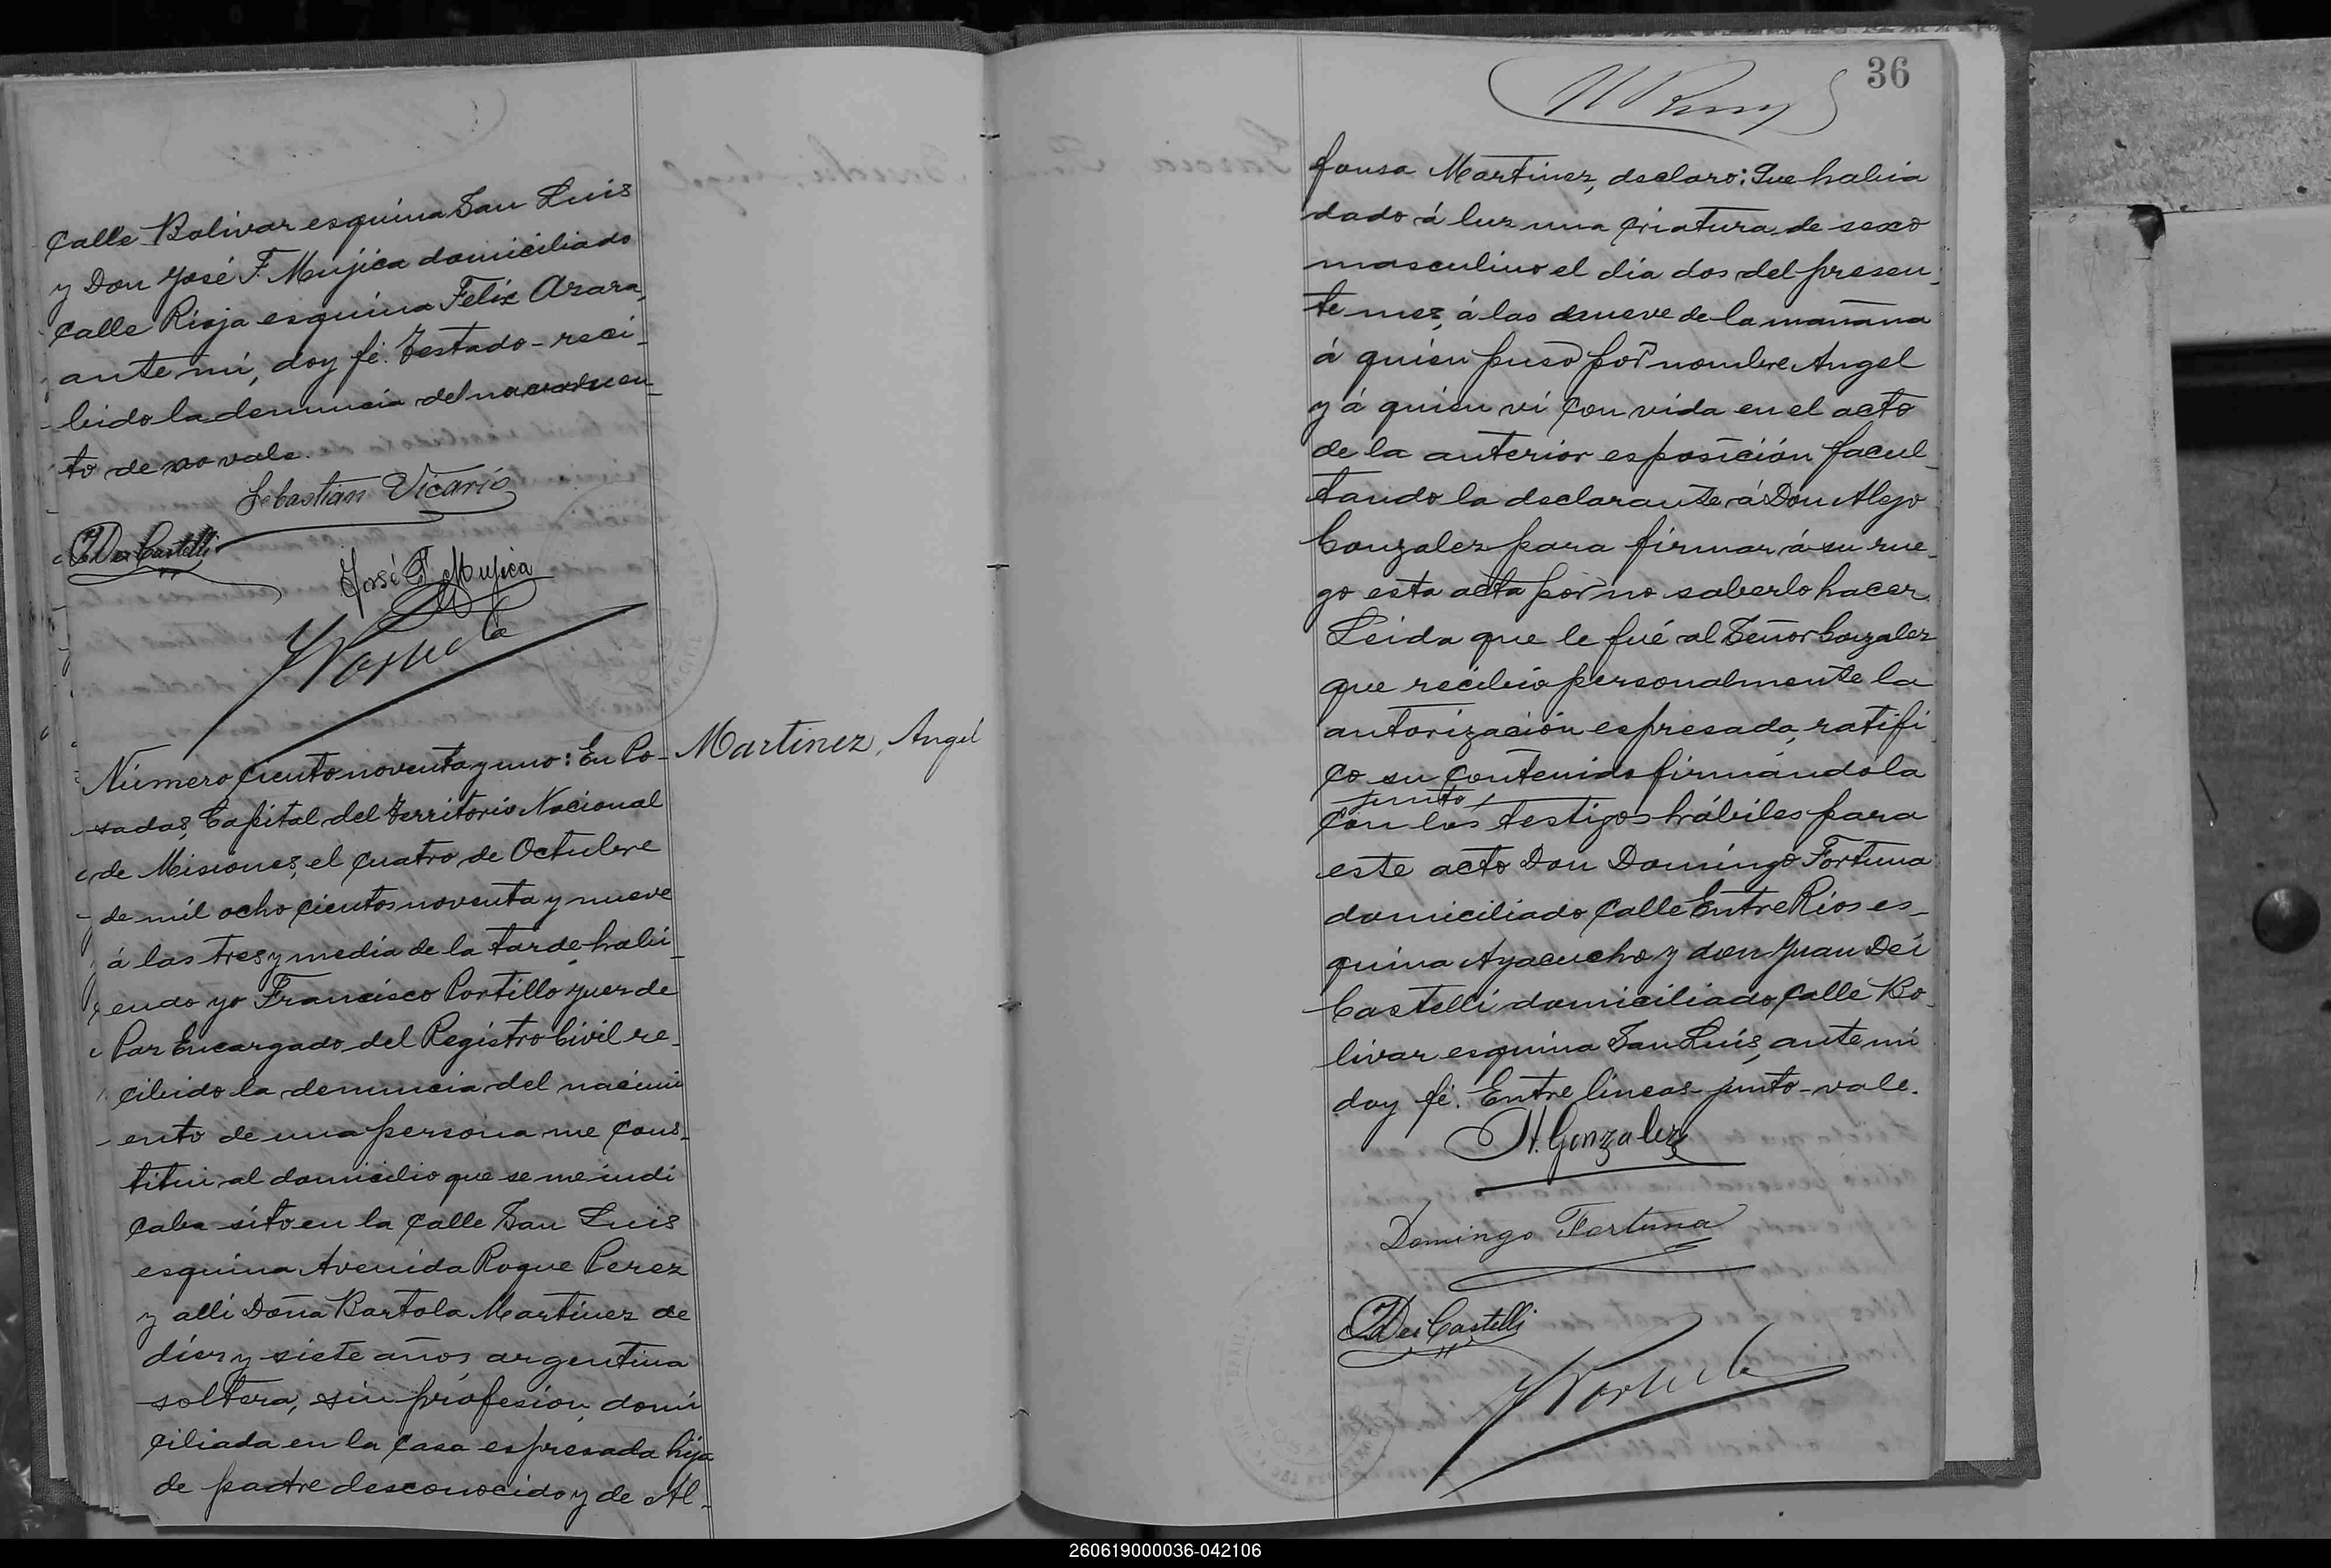 calle Bolivar esquina San Luis
y Don José F. Mujica domiciliado
calle Rioja esquina Felix Azara,
ante mí, doy fé. Testado - reci-
bido la denuncia del nacimien-
to de no vale.
Sebastián Vicario
J Dei Castelli
José F. Mujica
Número ciento noventa y uno: En Po-
Martinez, Angel
sadas, Capital del Territorio Nacional
de Misiones, el cuatro de Octubre
de mil ocho cientos noventa y nueve
á las tres y media de la tarde, habi-
endo yo Francisco Portillo Juez de
Paz Encargado del Registro Civil re-
cibido la denuncia del nacimi
ento de una persona me cons-
titui al domicilio que se me indi
caba sito en la calle San Luis
esquina Avenida Roque Perez
y alli Doña Bartola Martinez de
diez y siete años, argentina
soltera, sin profesión, domi
ciliada en la casa espresada hija
de padre desconocido y de Al-
36
fonsa Martinez, declaro: Que habia
dado á luz una criatura de sexo
masculino el dia dos del presen-
te mes, á las nueve de la mañana
á quien puso por nombre Angel
y á quien vi con vida en el acto
de la anterior esposición facul-
tando la declarante á Don Alejo
Gonzalez para firmar á su rue-
go esta acta por no saberlo hacer.
Leida que le fué al Señor Gonzalez
que recibio personalmente la
autorización espresada, ratifi
co su contenido firmándola
junto
con los testigos hábiles para
este acto Don Domingo Fortuna
domiciliado calle Entre Rios es-
quina Ayacucho y don Juan Dei
Castelli domiciliado calle Bo-
livar esquina San Luis, ante mi
doy fé. Entre lineas - junto - vale.
A. Gonzalez
Domingo Fortuna
J Dei Castelli
260619000036-042106